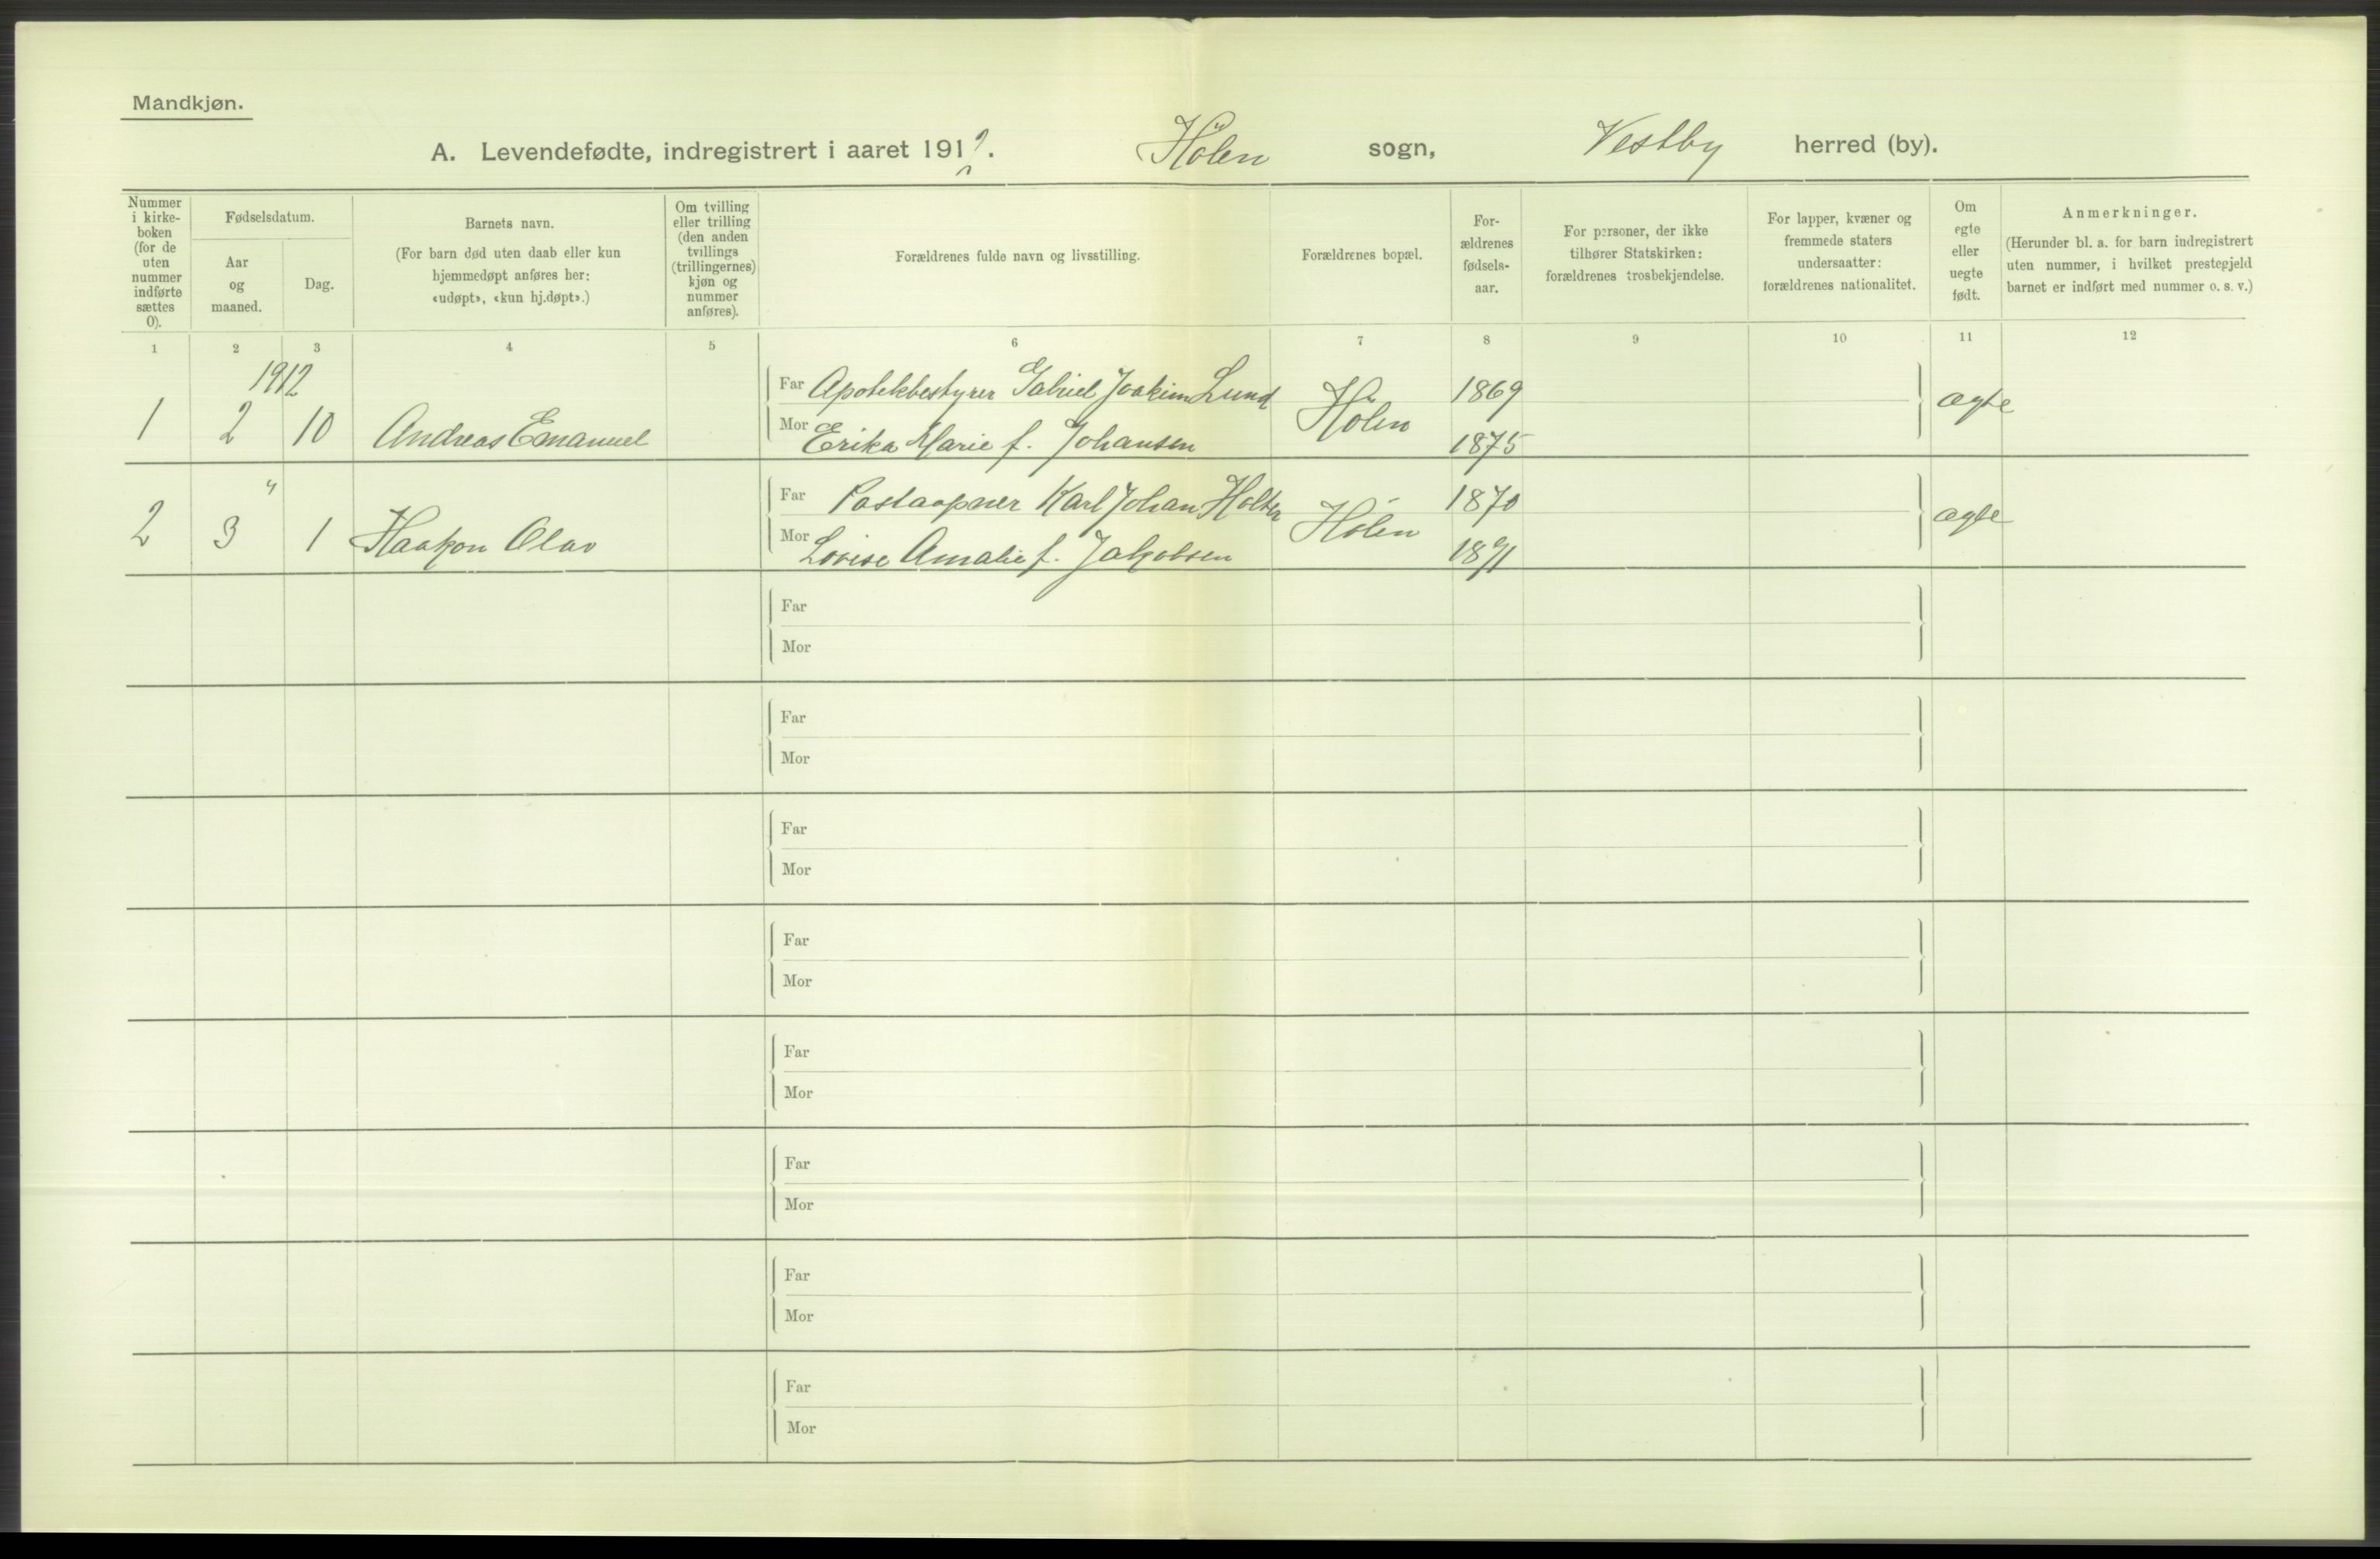 Mandkjøn.
A. Levendefødte, indregistrert i aaret 1912. Hölen sogn, Vestby herred (by).
Nummer i kirke-boken (for de uten nummer indførte sættes 0).
Fødselsdatum.
Aar og maaned.
Dag.
Barnets navn.
(For barn død uten daab eller kun hjemmedøpt anføres her: «udøpt», «kun hj.døpt».)
Om tvilling eller trilling (den anden tvillings (trillingernes) kjøn og nummer anføres).
Forældrenes fulde navn og livsstilling.
Forældrenes bopæl.
For-ældrenes fødsels-aar.
For personer, der ikke tilhører Statskirken: forældrenes trosbekjendelse.
For lapper, kvæner og fremmede staters undersaatter: forældrenes nationalitet.
Om egte eller uegte født.
Anmerkninger.
(Herunder bl. a. for barn indregistrert uten nummer, i hvilket prestegjeld barnet er indført med nummer o. s. v.)
1 2 3 4 5 6 7 8 9 10 11 12
1912
1 2 10 Andreas Emanuel
Far Apotekbestyrer Gabriel Joakim Lund Hölen 1869 ægte
Mor Erika Marie f. Johansen 1875
"
2 3 1 Haakon Olav
Far Postaapner Karl Johan Holter Hölen 1870 ægte
Mor Lovise Amalie f. Jakobsen 1871
Far
Mor
Far
Mor
Far
Mor
Far
Mor
Far
Mor
Far
Mor
Far
Mor
Far
Mor